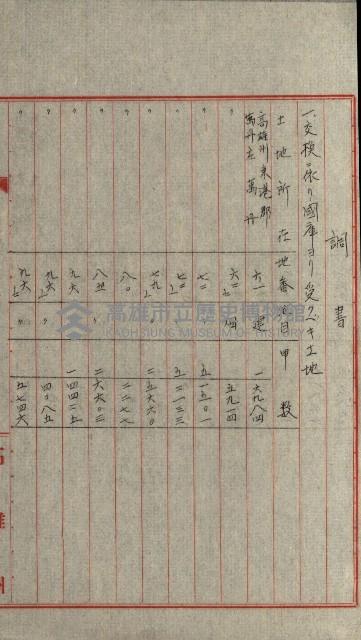 調書
一、交換ニ依リ國庫ヨリ受クベキ土地
土地所在 地番 地目 甲數
高雄州東港郡萬丹庄萬丹 六一 建 一六九八四
〃 六二 〃 五九一四
〃 七一 五一五〇一
〃 五二一三三
〃 七九 二五六六〇
〃 八〇 二二七七
〃 八五 〃 二六六〇三
〃 九六 一四四二五
〃 九六 〃 四〇八五
〃 九六 〃 五七四六
高雄市立歷史博物館
KAOHSIUNG MUSEUM OF HISTORY
高雄州